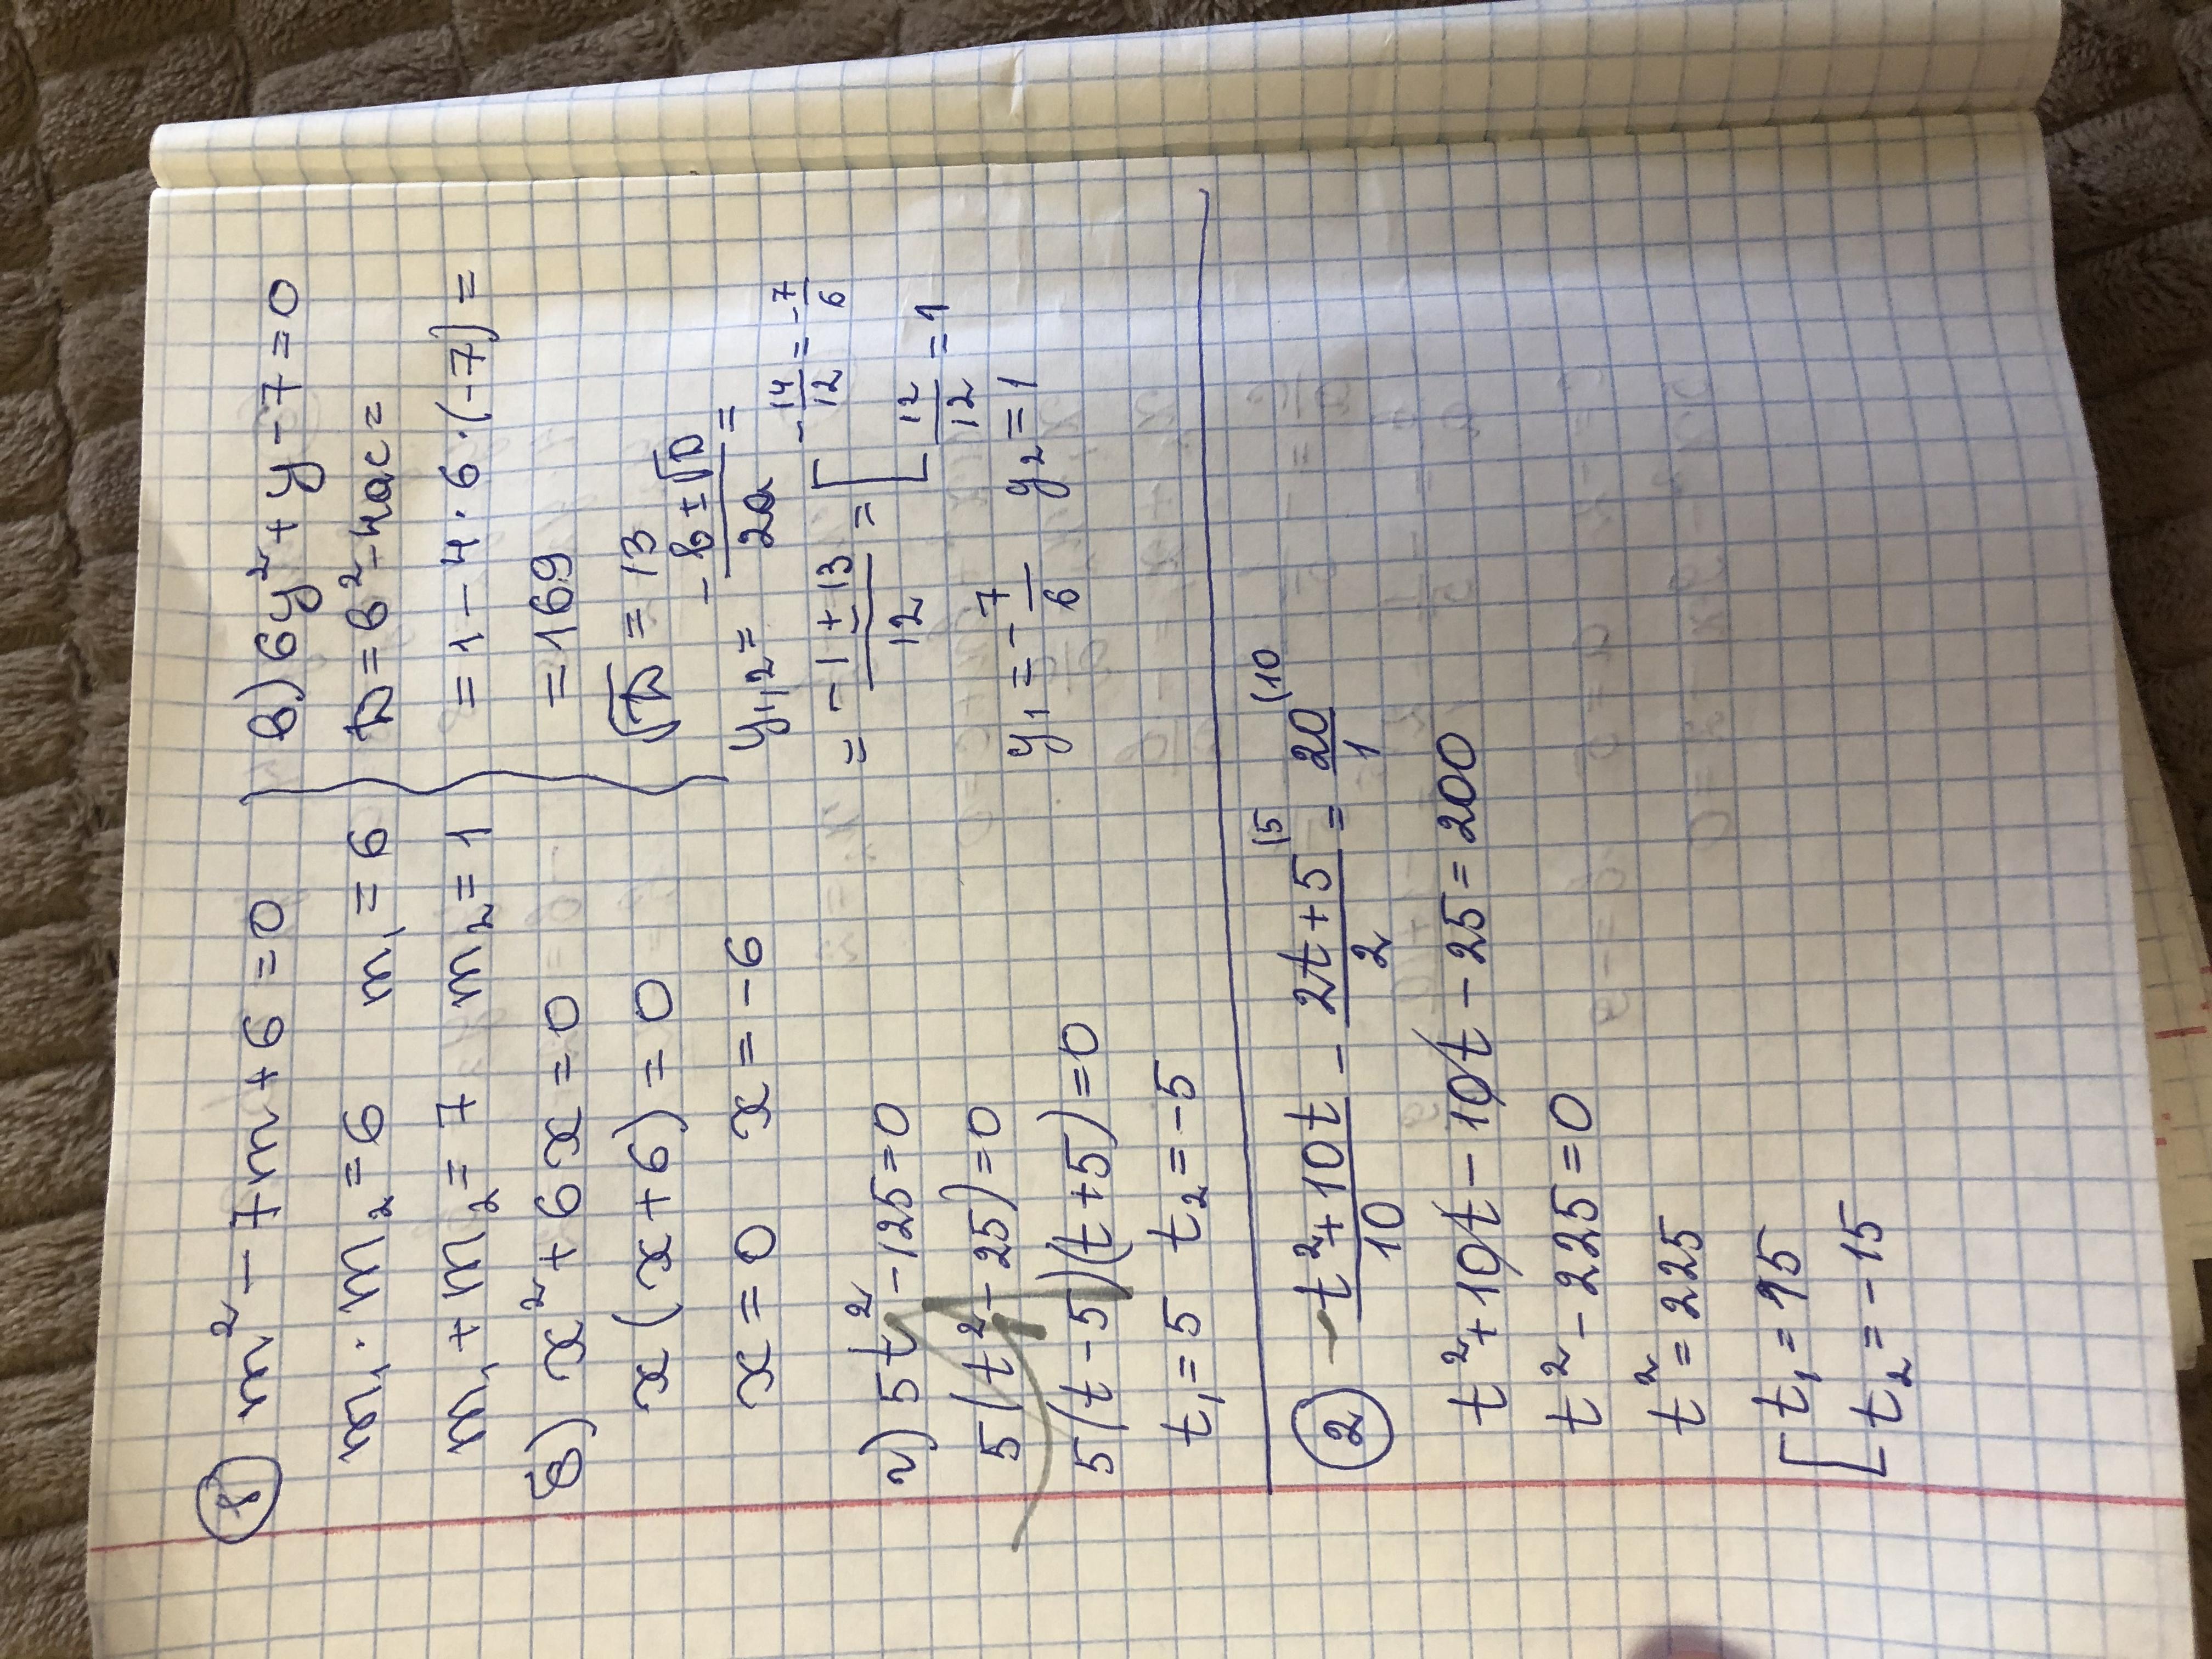 1) m² - 7m + 6 = 0
m₁ · m₂ = 6 m₁ = 6
m₁ + m₂ = 7 m₂ = 1
б) x² + 6x = 0
x(x + 6) = 0
x = 0 x = -6
г) 5t² - 125 = 0
5(t² - 25) = 0
5(t - 5)(t + 5) = 0
t₁ = 5 t₂ = -5
в) 6y² + y - 7 = 0
D = b² - 4ac =
= 1 - 4 · 6 · (-7) =
= 169
√D = 13
y₁,₂ = (-b ± √D)/2a =
= (-1 ± 13)/12 = [ -14/12 = -7/6
12/12 = 1
y₁ = -7/6 y₂ = 1
2 (t² + 10t)/10 - (2t + 5)/2 (5 = 20/1 (10
t² + 10t - 10t - 25 = 200
t² - 225 = 0
t² = 225
[ t₁ = 15
t₂ = -15